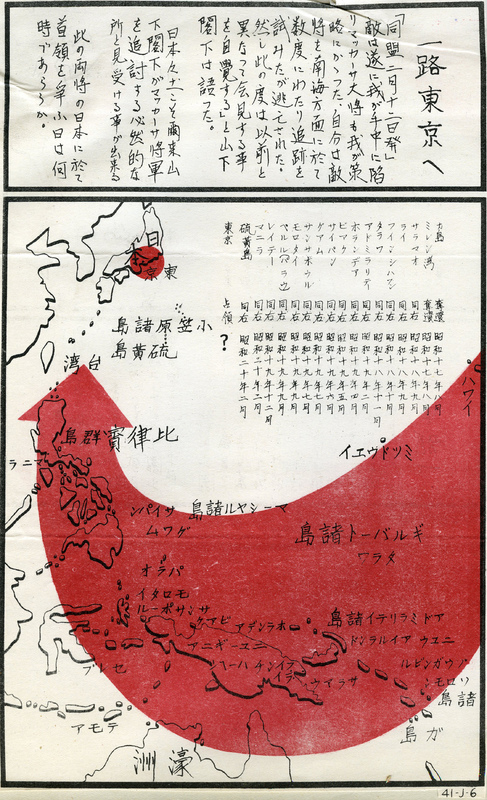 一路東京へ
「同盟二月十二日発」
敵は遂に我が手中に陥
りマッカサ大将も我が策
略にかゝった。自分は敵
将を南海方面に於て
数度にわたり追跡を
試みたが逃亡された。
然し此の度は以前と
異なって会見する事
を自覚する」と山下
閣下は語った。
日本々土こそ爾来山
下閣下がマッカサ将軍
を追討する必然的な
所と見受ける事が出来る
此の両将の日本に於て
首領を争ふ日は何
時であらうか。
ガ島 奪還 昭和十七年八月
ミレン湾 奪還 昭和十七年八月
サラマオ 同右 昭和十八年九月
ライ 同右 昭和十八年九月
フィンシハヘン 同右 昭和十八年十月
タラワ 同右
アドミラリテイ 同右
ホランデア 同右
ビアク 同右 昭和十九年五月
サイパン 同右 昭和十九年六月
グアム 同右 昭和十九年七月
サンサポール 同右 昭和十九年七月
モロタイ 同右 昭和十九年九月
ペルル(パラウ) 同右 昭和十九年九月
レイテー 同右
マニラ 同右 昭和二十年二月
硫黄島 同右 昭和二十年二月
東京 占領 ?
日本
東京
小笠原諸島
硫黄島
台湾
ハワイ
ミッドウエイ
比律賓群島
マニラ
マーシヤル諸島
サイパン
グワム
ギルバート諸島
タラワ
パラオ
モロタイ
サンサポール
ビアケ
ホランデア
アドミラリテイ諸島
ニユウアイルランド
ニユーギニア
フインチハーハン
ライ
サラマウア
ブーゲンビル
ソロモン
諸島
ガ島
セレブ
テモア
濠洲
41-J-6